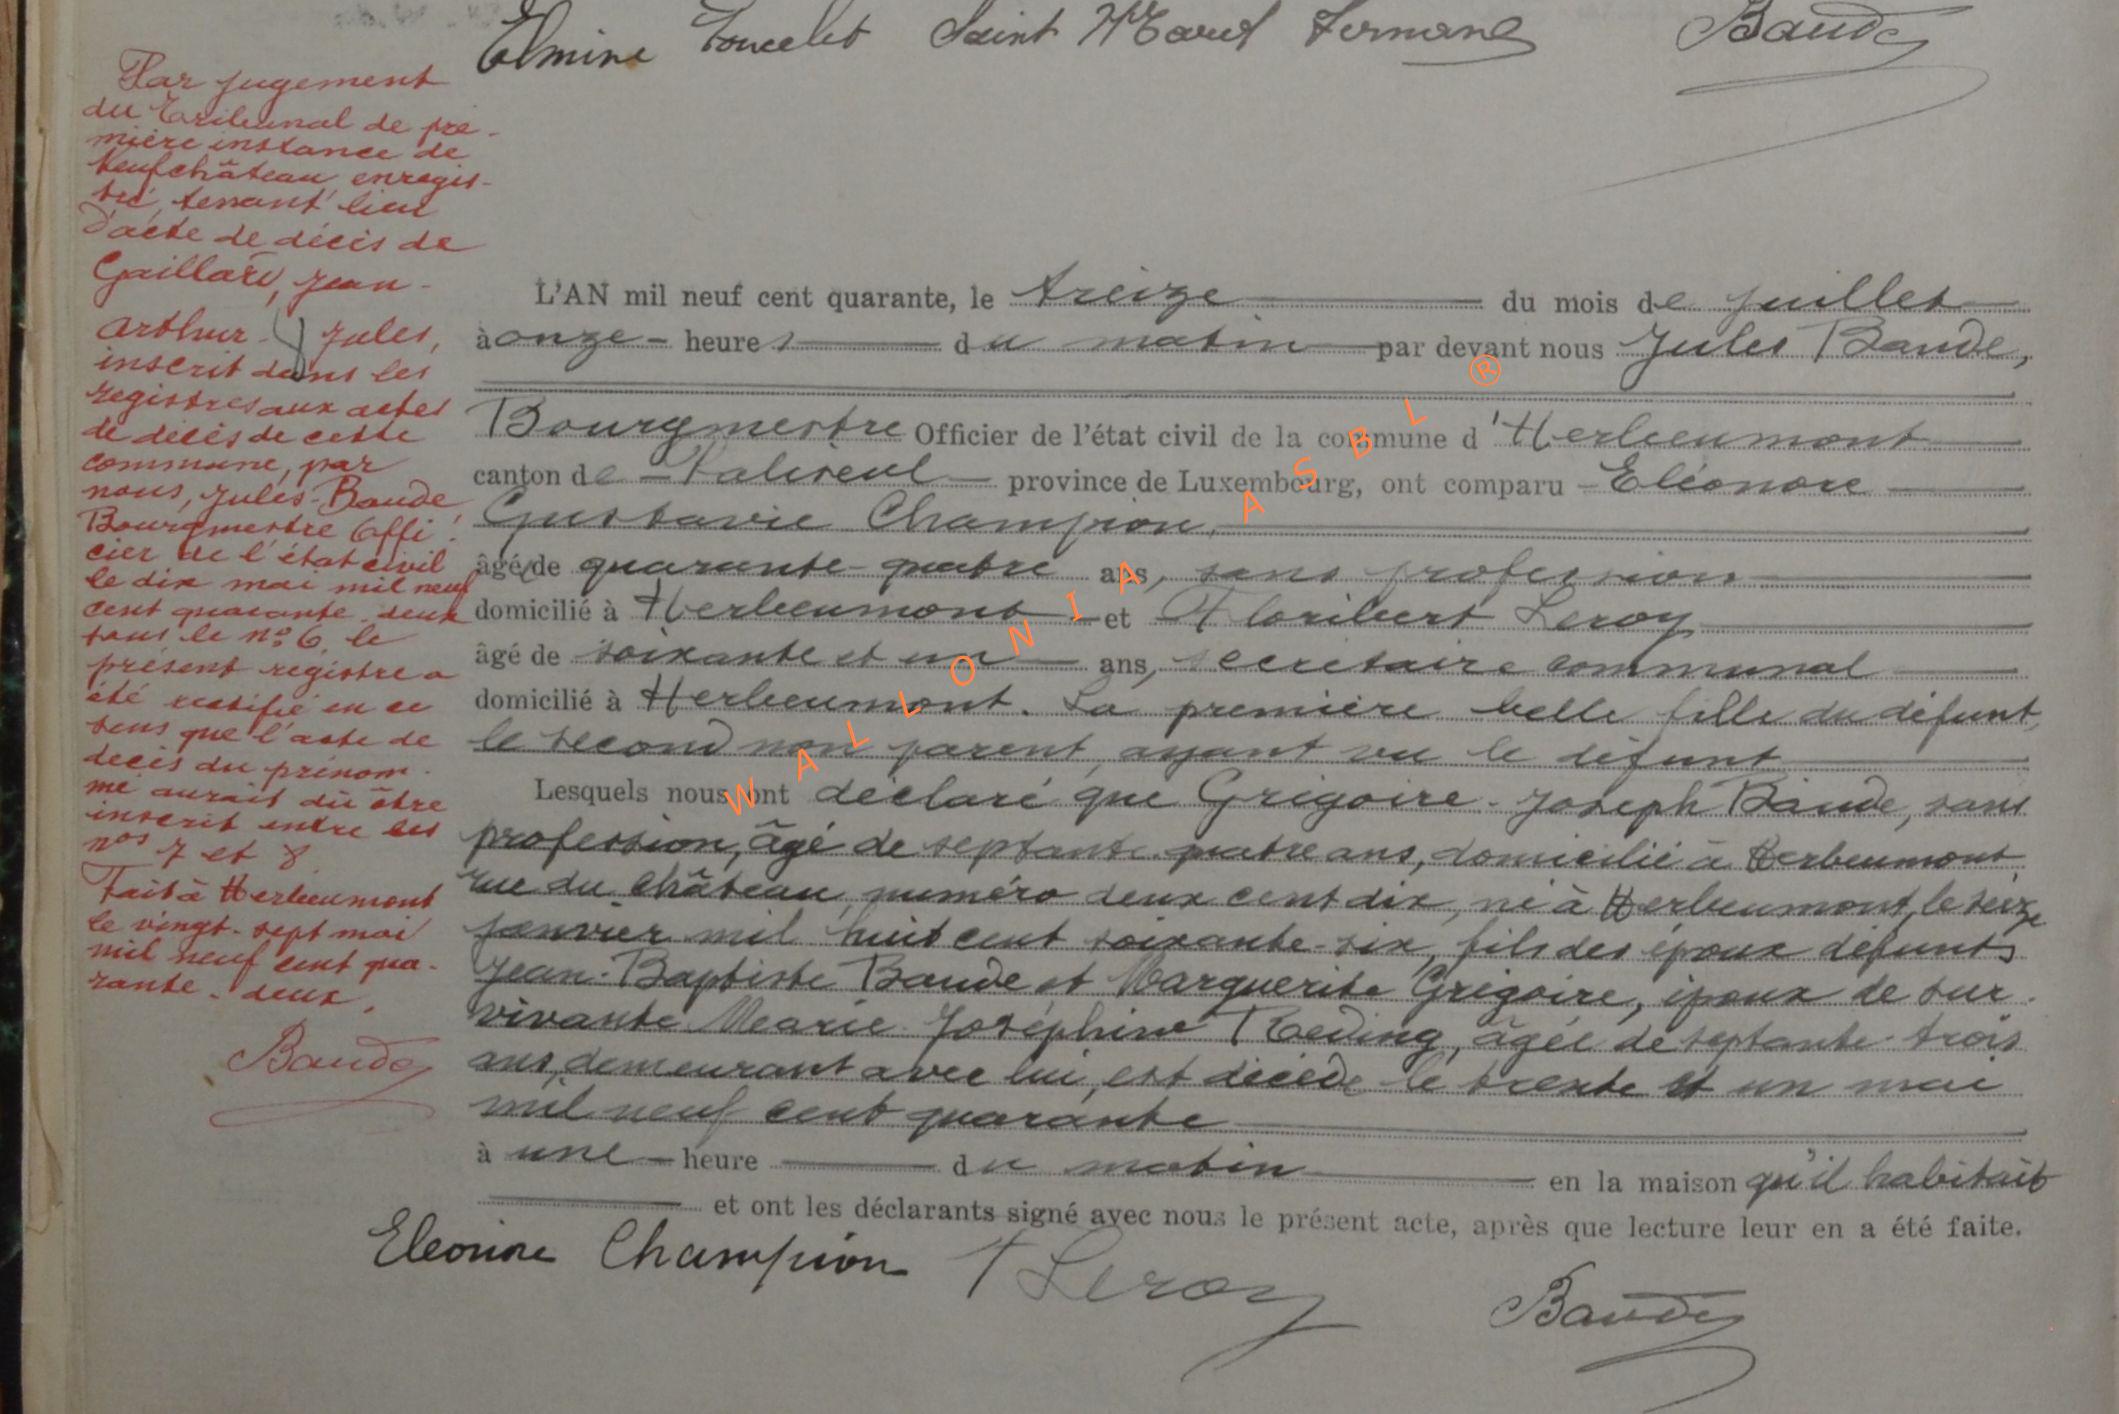 Elmire Poncelet Saint Mard Fernand Baude
Par jugement
du Tribunal de pre-
mière instance de
Neufchâteau enregis-
tré, tenant lieu
d'acte de décès de
Gaillard, Jean-
Arthur - Jules,
inscrit dans les
registres aux actes
de décès de cette
commune, par
nous, Jules Baude
Bourgmestre Offi-
cier de l'état civil
le dix mai mil neuf
cent quarante-deux
sous le n° 6, le
présent registre a
été rectifié en ce
sens que l'acte de
décès du prénom-
mé aurait dû être
inscrit entre les
nos 7 et 8
Fait à Herbeumont
le vingt-sept mai
mil neuf cent qua-
rante-deux.
Baude
L'AN mil neuf cent quarante, le treize du mois de juillet
à onze heures du matin par devant nous Jules Baude,
Bourgmestre Officier de l'état civil de la commune d'Herbeumont
canton de Paliseul province de Luxembourg, ont comparu Eléonore
Gustavie Champion,
âgée de quarante-quatre ans, sans profession
domicilié à Herbeumont et Floribert Leroy
âgé de soixante et un ans, secrétaire communal
domicilié à Herbeumont. La première belle fille du défunt,
le second non parent, ayant vu le défunt
Lesquels nous ont déclaré que Grégoire-Joseph Baude, sans
profession, âgé de septante-quatre ans, domicilié à Herbeumont
rue du Château, numéro deux cent dix, né à Herbeumont, le seize
janvier mil huit cent soixante-six, fils des époux défunts
Jean-Baptiste Baude et Marguerite Grégoire, époux de sur-
vivante Marie-Joséphine Reding, âgée de septante-trois
ans, demeurant avec lui, est décédé le trente et un mai
mil neuf cent quarante
à une heure du matin en la maison qu'il habitait
et ont les déclarants signé avec nous le présent acte, après que lecture leur en a été faite.
Eleonore Champion F Leroy Baude
WALLONIA ASBL ®